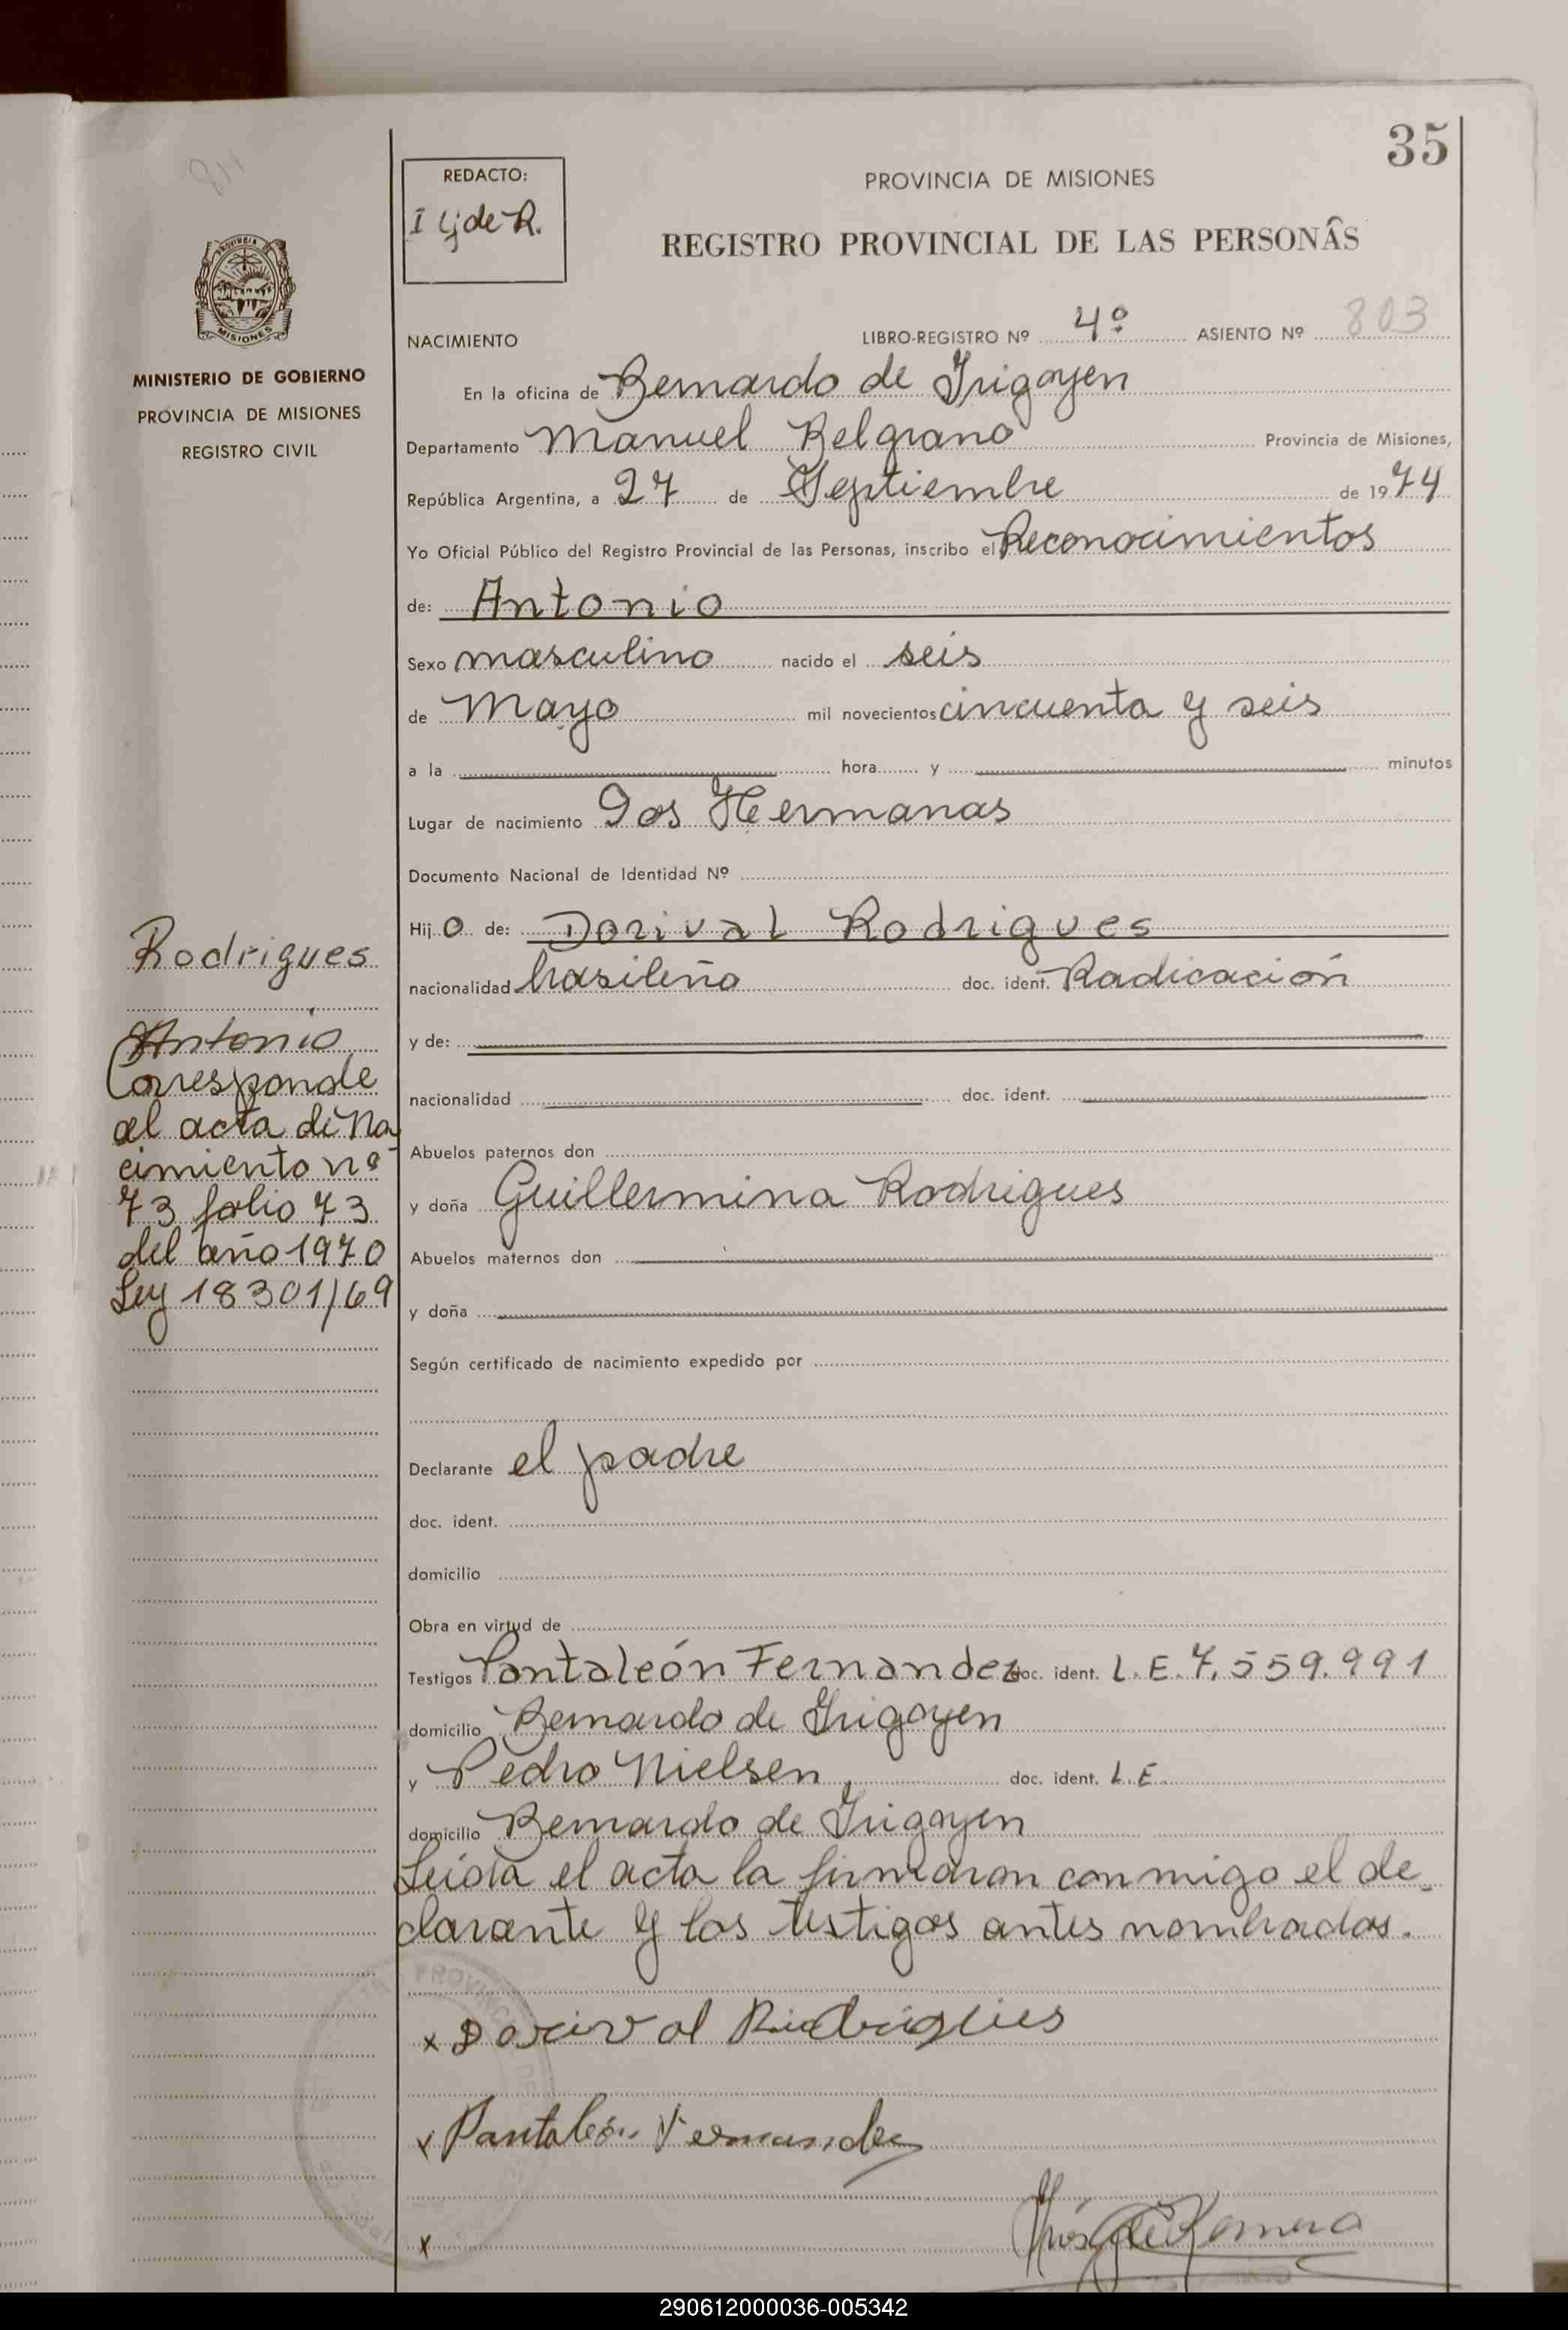 35
REDACTO:
I G de R.
PROVINCIA DE MISIONES
REGISTRO PROVINCIAL DE LAS PERSONAS
MISIONES
MINISTERIO DE GOBIERNO
PROVINCIA DE MISIONES
REGISTRO CIVIL
NACIMIENTO LIBRO-REGISTRO Nº 4º ASIENTO Nº 803
En la oficina de Bernardo de Irigoyen
Departamento Manuel Belgrano Provincia de Misiones,
República Argentina, a 27 de Septiembre de 1974
Yo Oficial Público del Registro Provincial de las Personas, inscribo el Reconocimientos
de: Antonio
Sexo masculino nacido el seis
de Mayo mil novecientos cincuenta y seis
a la hora y minutos
Lugar de nacimiento Dos Hermanas
Documento Nacional de Identidad Nº
Hijo de: Dorival Rodrigues
nacionalidad brasileña doc. ident. Radicación
y de:
nacionalidad doc. ident.
Abuelos paternos don
y doña Guillermina Rodrigues
Abuelos maternos don
y doña
Según certificado de nacimiento expedido por
Declarante el padre
doc. ident.
domicilio
Obra en virtud de
Testigos Pantaleón Fernandez doc. ident. L.E. 7.559.991
domicilio Bernardo de Irigoyen
y Pedro Nielsen, doc. ident. L.E.
domicilio Bernardo de Irigoyen
Leída el acta la firmaron conmigo el de-
clarante y los testigos antes nombrados.
x Dorival Rodrigues
x Pantaleón Fernandez
x
Rodrigues
Antonio
Corresponde
al acta de Na-
cimiento nº
73 folio 73
del año 1970
Ley 18301/69
290612000036-005342